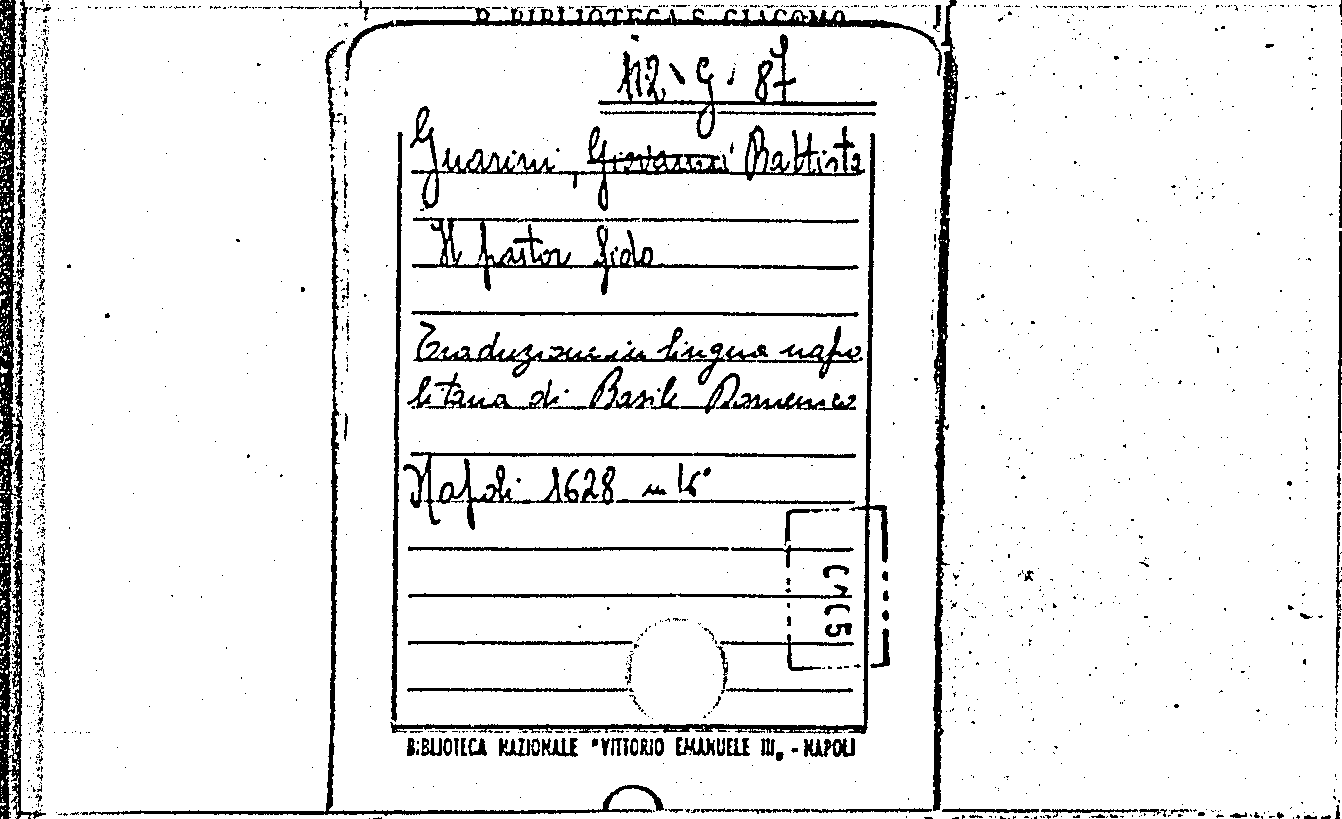 R. BIBLIOTECA S. GIACOMO
112. G. 87
Guarini, Giovanni Battista
Il pastor fido
Traduzione in lingua napo
litana di Basile Domenico
Napoli 1628 in 16°
BIBLIOTECA NAZIONALE "VITTORIO EMANUELE III" - NAPOLI